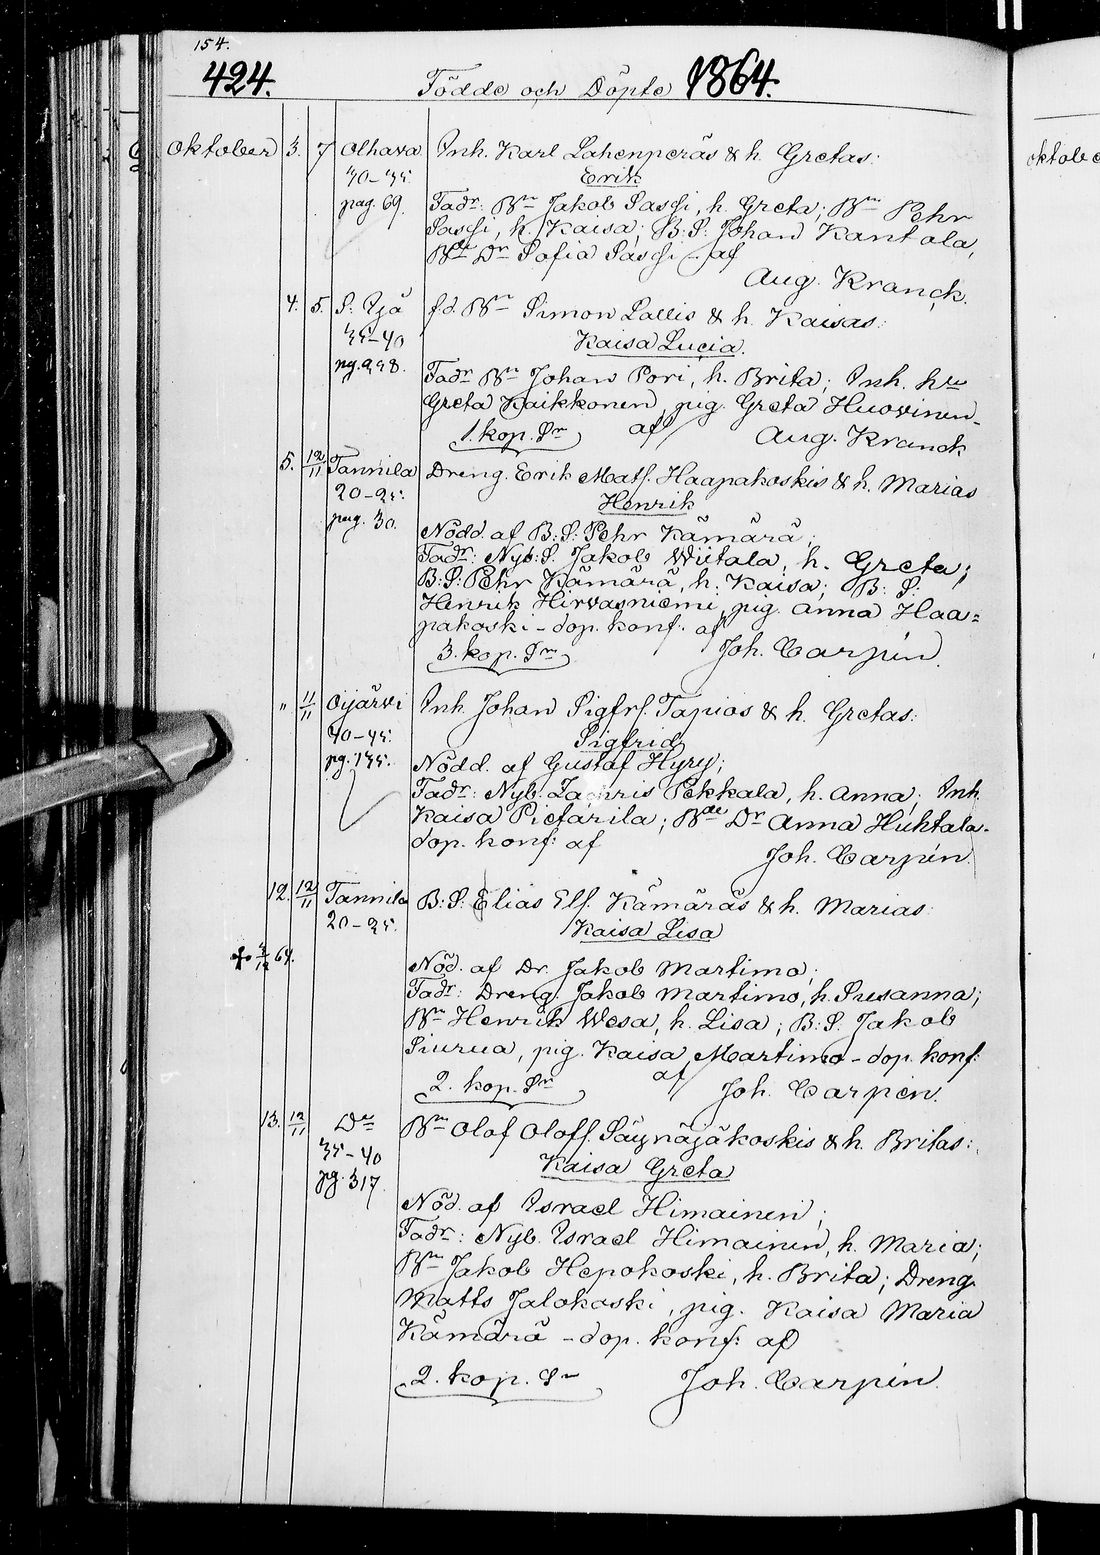 154.
424. Födde och Döpte 1864.
Oktober 3. 7 Olhava Inh. Karl Lahenperäs & h. Gretas:
30-35. Erik
pag. 69. Fadr: Bn Jakob Sassi, h. Greta; Bn Pehr
Sassi, h. Kaisa; B:S: Johan Kantola,
Bde Dr Sofia Sassi - af
Aug. Kranck.
4. 5. S: Ijå fd. Bn Simon Lallis & h. Kaisas:
35-40 Kaisa Lucia.
pg. 298. Fadr Bn Johan Pori, h. Brita; Inh. hru
Greta Kaikkonen, pig. Greta Huovinen-
1. kop. Sm af Aug. Kranck
5. 12/11 Tannila Dreng. Erik Mats. Haapakoskis & h. Marias
20-25. Henrik
pag. 30. Nödd. af B:S: Pehr Kämärä;
Fadr: Nyb:S. Jakob Wiitala, h. Greta;
B:S: Pehr Kämärä, h. Kaisa; B:S:
Henrik Hirvasniemi, pig. Anna Haa=
pakoski - dop. konf. af
3. kop. Sm Joh. Carpén.
" 11/11 Oijärvi Inh. Johan Sigfrs. Tapios & h. Gretas:
40-45. Sigfrid
pg. 135. Nödd. af Gustaf Hyry;
Fadr: Nyb. Zachris Pekkala, h. Anna; Inh.
Kaisa Pietarila; Bde Dr Anna Huhtala-
dop. konf: af
Joh. Carpén.
12. 12/11 Tannila B:S: Elias Els. Kämäräs & h. Marias:
20-25. Kaisa Lisa
64. Nöd. af Dr. Jakob Martimo;
Fadr: Dreng. Jakob Martimo, h. Susanna;
Bn Henrik Wesa, h. Lisa; B:S. Jakob
Siurua, pig. Kaisa Martimo - dop. konf:
2. kop. Sm af Joh. Carpén.
13. 12/11 Do Bn Olof Olofs. Säynäjäkoskis & h. Britas:
35-40 Kaisa Greta
pg. 317. Nöd. af Israel Himainen;
Fadr: Nyb. Israel Himainen, h. Maria;
Bn Jakob Hepokoski, h. Brita; Dreng.
Matts Jalokoski, pig. Kaisa Maria
Kämärä - dop. konf: af
2. kop. Sm Joh. Carpén.
Oktobe